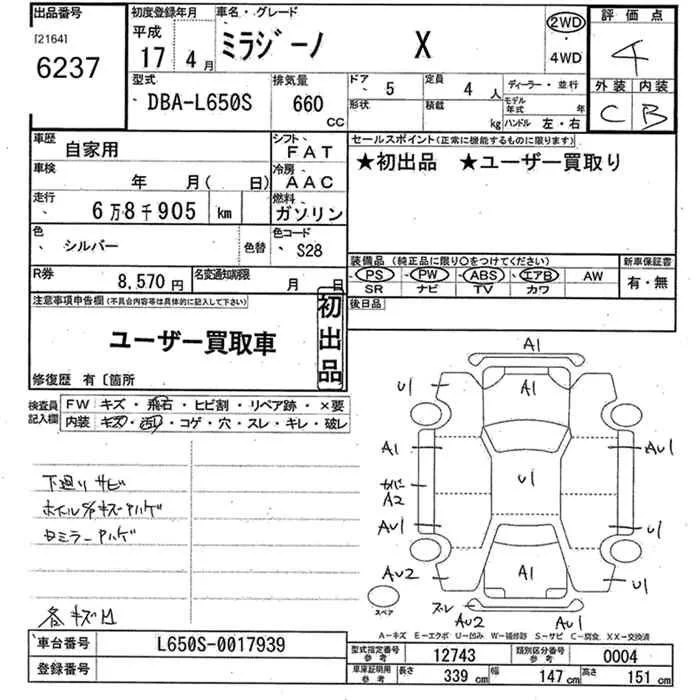 出品番号 初度登録年月 車名・グレード 評価点
[2164] 平成 ミラジーノ X 2WD 4
6237 17年 4月 4WD 外装 内装
C B
型式 排気量 ドア 5 定員 4人 ディーラー・並行
DBA-L650S 660 CC 形状 積載 kg モデル年式 年
ハンドル 左・右
車歴 自家用 シフト FAT セールスポイント(正常に機能するものに限ります)
車検 年 月( 日) 冷房 AAC ★初出品 ★ユーザー買取り
走行 6万8千905 km 燃料 ガソリン
色 シルバー 色替 色コード S28
装備品 (純正品に限り○をつけてください) 新車保証書
R券 8,570円 名変通知期限 月 日 PS・PW・ABS・エアB AW 有・無
SR ナビ TV カワ
注意事項申告欄(不具合内容等は具体的に記入して下さい) 初出品 後日品
ユーザー買取車
修復歴 有〔箇所
検査員記入欄 FW キズ・飛石・ヒビ割・リペア跡・×要
内装 キズ・汚れ・コゲ・穴・スレ・キレ・破レ
下廻りサビ
キズハゲ
ミラーハゲ
各キズ凹
A1
U1
A1 AU1
カバー U1
A2
AU1 U1
AU2 A1 U1
スペア ズレ AU2 AU1
A-キズ E-エクボ U-凹み W-補修跡 S-サビ C-腐食 XX-交換済
車台番号 L650S-0017939 型式指定番号 参考 12743 類別区分番号 参考 0004
登録番号 車庫証明用 参考 長さ 339 cm 幅 147 cm 高さ 151 cm